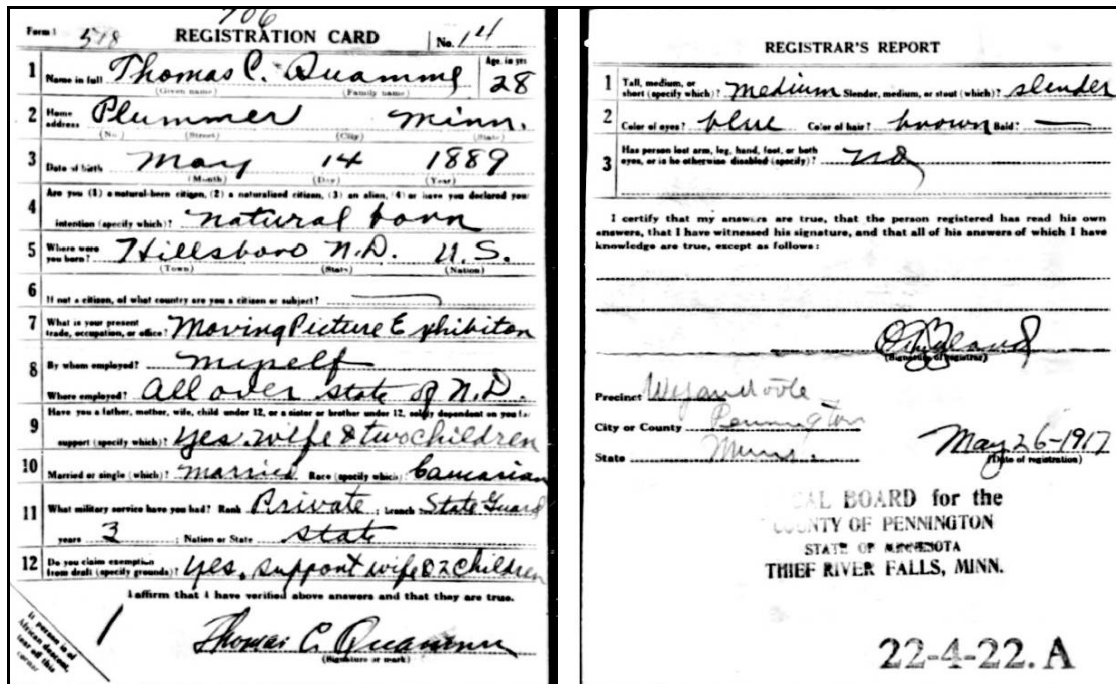 706
Form 1 518 REGISTRATION CARD No. 14
1 Name in full Thomas C. Quamme Age, in yrs 28
(Given name) (Family name)
2 Home address Plummer Minn.
(No.) (Street) (City) (State)
3 Date of birth May 14 1889
(Month) (Day) (Year)
4 Are you (1) a natural-born citizen, (2) a naturalized citizen, (3) an alien, (4) or have you declared your
intention (specify which)? natural born
5 Where were you born? Hillsboro N.D. U.S.
(Town) (State) (Nation)
6 If not a citizen, of what country are you a citizen or subject?
7 What is your present trade, occupation, or office? Moving Picture Exhibitor
8 By whom employed? myself
Where employed? All over state of N.D.
9 Have you a father, mother, wife, child under 12, or a sister or brother under 12, solely dependent on you for
support (specify which)? Yes. wife & two children
10 Married or single (which)? Married Race (specify which)? Caucasian
11 What military service have you had? Rank Private ; branch State Guard
years 3 ; Nation or State State
12 Do you claim exemption from draft (specify grounds)? Yes, support wife & 2 children
I affirm that I have verified above answers and that they are true.
Thomas C. Quamme
(Signature or mark)
If person is of
African descent,
tear off this
corner
REGISTRAR'S REPORT
1 Tall, medium, or short (specify which)? Medium Slender, medium, or stout (which)? slender
2 Color of eyes? blue Color of hair? brown Bald?
3 Has person lost arm, leg, hand, foot, or both eyes, or is he otherwise disabled (specify)? No
I certify that my answers are true, that the person registered has read his own
answers, that I have witnessed his signature, and that all of his answers of which I have
knowledge are true, except as follows:
(Signature of registrar)
Precinct Wyandotte
City or County Pennington
State Minn. May 26-1917
(Date of registration)
LOCAL BOARD for the
COUNTY OF PENNINGTON
STATE OF MINNESOTA
THIEF RIVER FALLS, MINN.
22-4-22. A